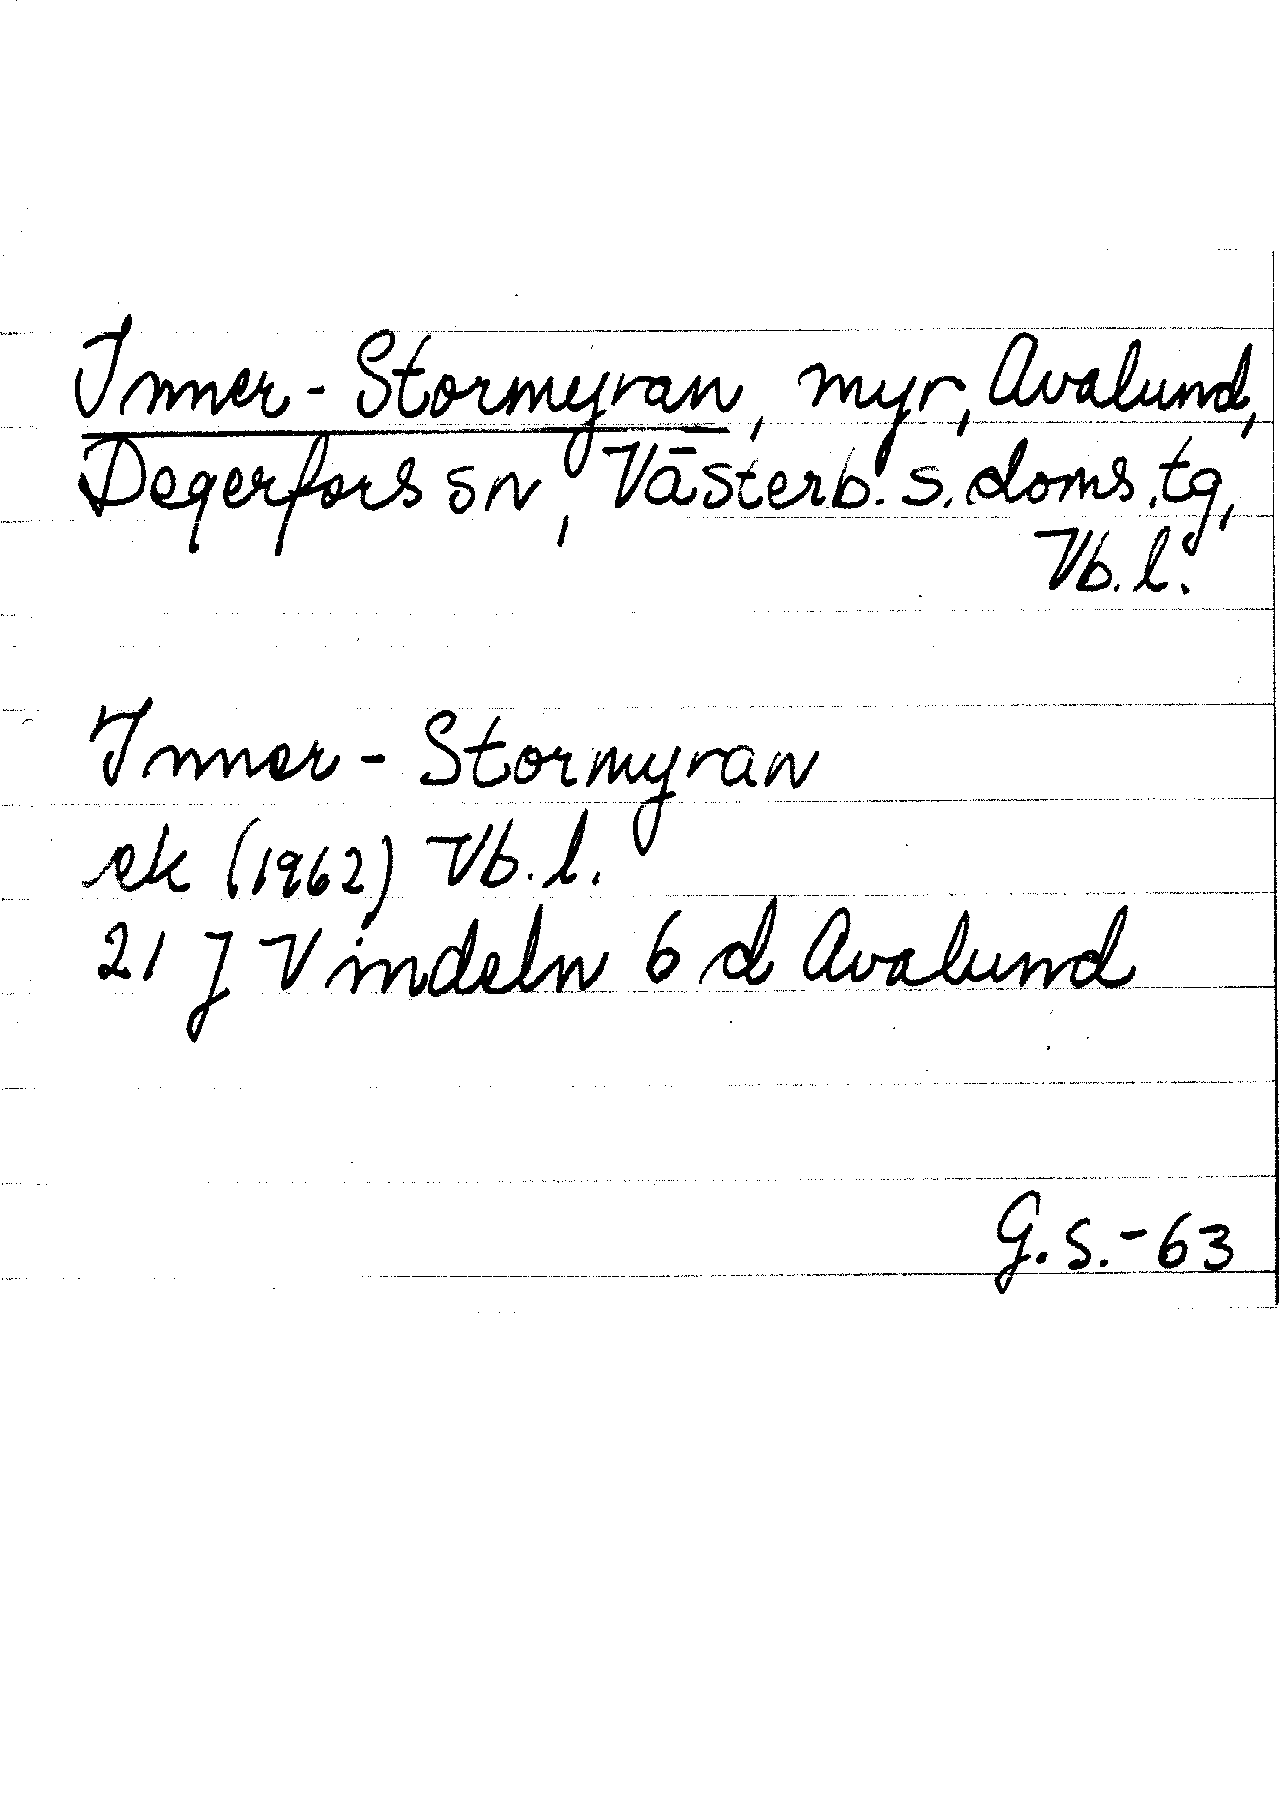 Inner-Stormyran, myr, Avalund,
Degerfors sn, Västerb. s. doms. tg,
Vb. l.
Inner-Stormyran
ek (1962) Vb. l.
21 J Vindeln 6 d Avalund
G. S. -63